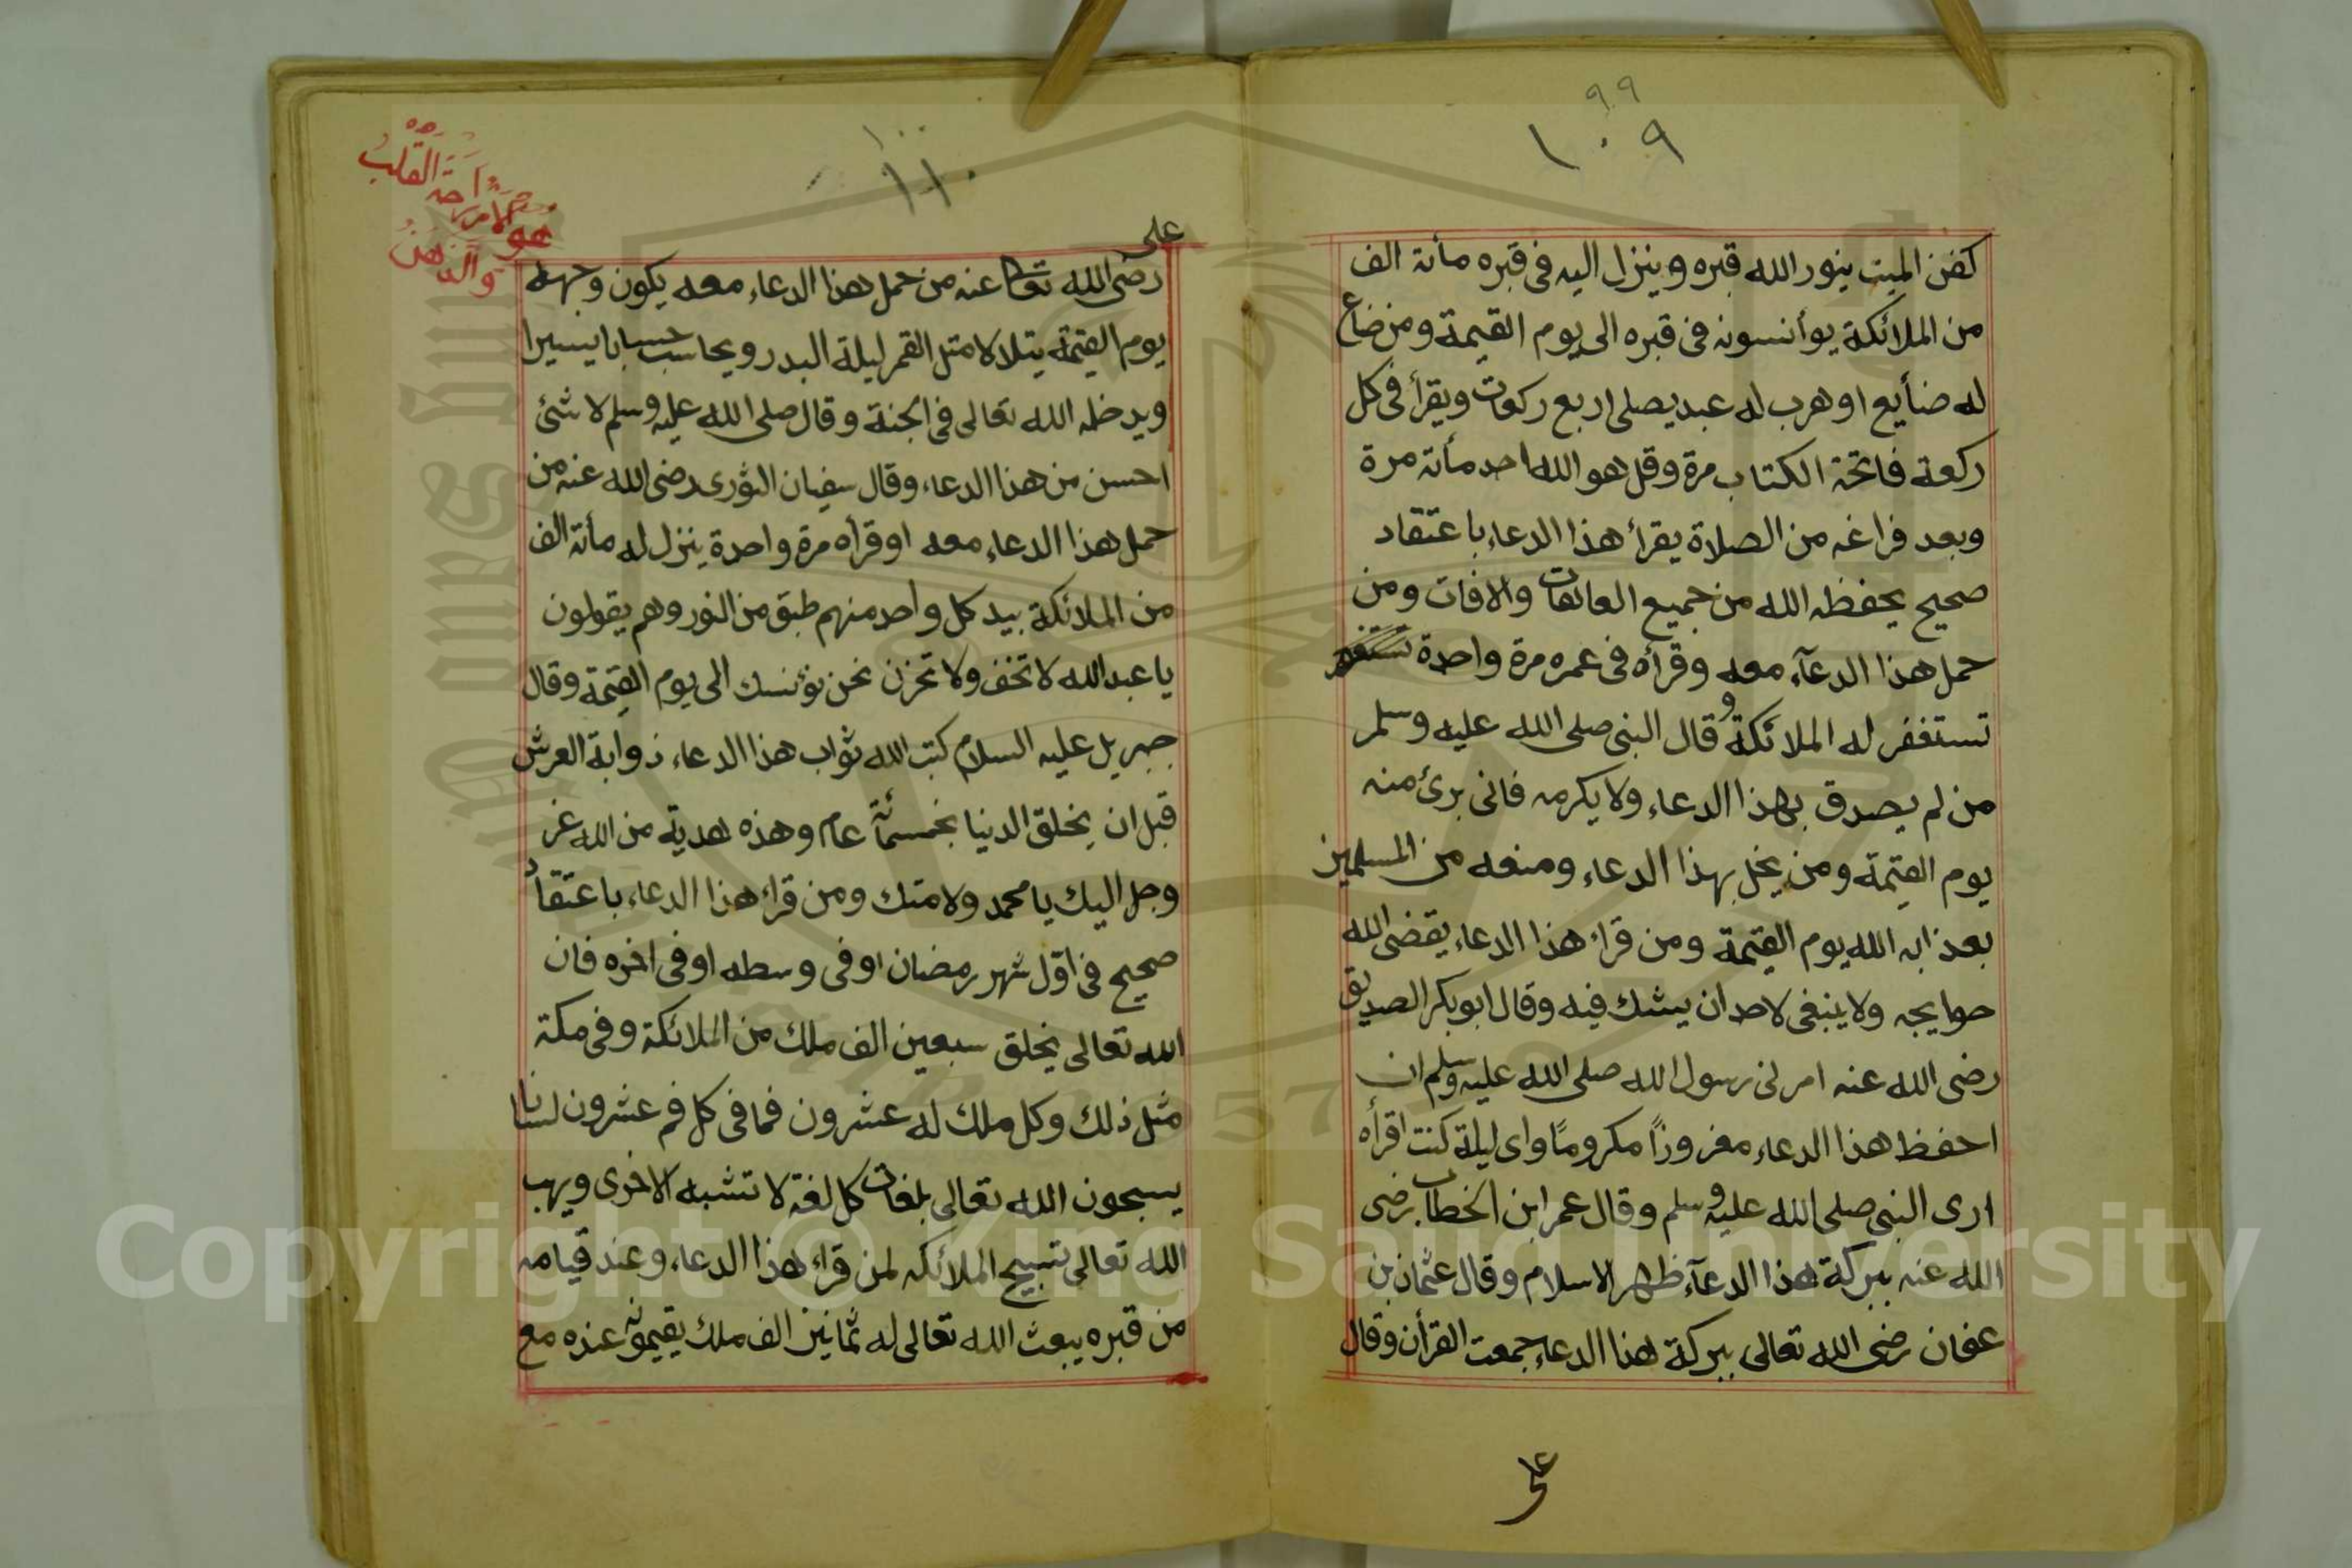 ٩٩
١٠٩
كفن الميت ينور الله قبره وينزل اليه فى قبره مأته الف
من الملائكة يوأنسونه فى قبره الى يوم القيمة ومن ضاع
له ضأيع او هرب له عبد يصلى اربع ركعات ويقرأ فى كل
ركعة فاتحة الكتاب مرة وقل هو الله احد مأته مرة
وبعد فراغه من الصلاة يقرأ هذا الدعاء باعتقاد
صحيح يحفظه الله من جميع العاهات والافات ومن
حمل هذا الدعآء معه وقرأه فى عمره مرة واحدة
تستغفر له الملائكة وقال النبى صلى الله عليه وسلم
من لم يصدق بهذا الدعاء ولا يكرمه فانى برئ منه
يوم القيمة ومن يخل بهذا الدعاء ومنعه من المسلمين
بعذابه الله يوم القيمة ومن قراء هذا الدعاء يقضى الله
حوايجه ولا ينبغى لاحد ان يشك فيه وقال ابو بكر الصديق
رضى الله عنه امرنى رسول الله صلى الله عليه وسلم ان
احفظ هذا الدعاء معزوزاً مكروماً واى ليلة كنت اقرأه
ارى النبى صلى الله عليه وسلم وقال عمر ابن الخطاب رضى
الله عنه ببركة هذا الدعآء ظهر الاسلام وقال عثمان بن
عفان رضى الله تعالى ببركة هذا الدعاء جمعت القرأن وقال
على
١٠٠
١١٠
على
رضى الله تعا عنه من حمل هذا الدعاء معه يكون وجهه
يوم القيمة يتلالا مثل القمر ليلة البدر ويحاسب حسابا يسيرا
ويدخله الله تعالى فى الجنة وقال صلى الله عليه وسلم لا شئ
احسن من هذا الدعاء وقال سفيان الثورى رضى الله عنه من
حمل هذا الدعاء معه او قرأه مرة واحدة ينزل له مأته الف
من الملائكة بيد كل واحد منهم طبق من النور وهم يقولون
يا عبد الله لا تخف ولا تحزن نحن نؤنسك الى يوم القيمة وقال
جبريل عليه السلام كتب الله ثواب هذا الدعاء ذوابة العرش
قبل ان يخلق الدنيا بخمسمأته عام وهذه هدية من الله عز
وجل اليك يا محمد ولامتك ومن قراء هذا الدعاء باعتقاد
صحيح فى اوّل شهر رمضان او فى وسطه او فى اخره فان
الله تعالى يخلق سبعين الف ملك من الملائكة وفى مكة
مثل ذلك وكل ملك له عشرون فما فى كل فم عشرون لسانا
يسبحون الله تعالى بلغات كل لغة لا تشبه الاخرى ويهب
الله تعالى تسبيح الملائكه لمن قراء هذا الدعاء وعند قيامه
من قبره يبعث الله تعالى له ثمانين الف ملك يقيمونه عنده مع
القلب
هو
والذهن
Copyright © King Saud University
1957